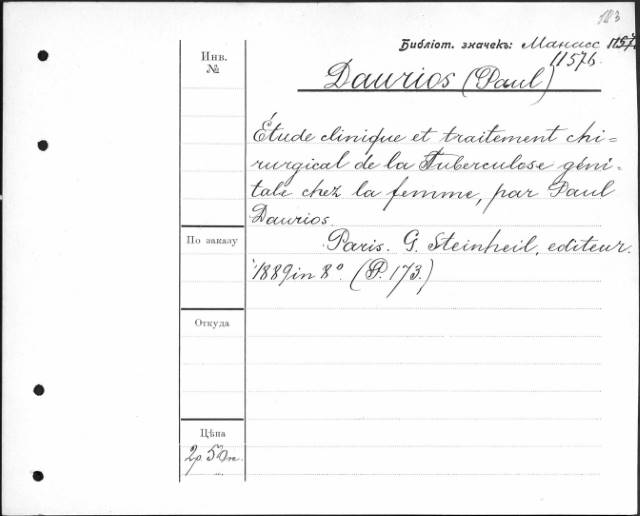 183
Библіот. значекъ: Манасс 1157
11576.
Инв.
№
Daurios (Paul)
Étude clinique et traitement chi=
rurgical de la Tuberculose géni=
tale chez la femme, par Paul
Daurios.
По заказу
Paris. G. Steinheil, editeur.
1889 in 8° (P. 173.)
Откуда
Цѣна
2р. 50к.